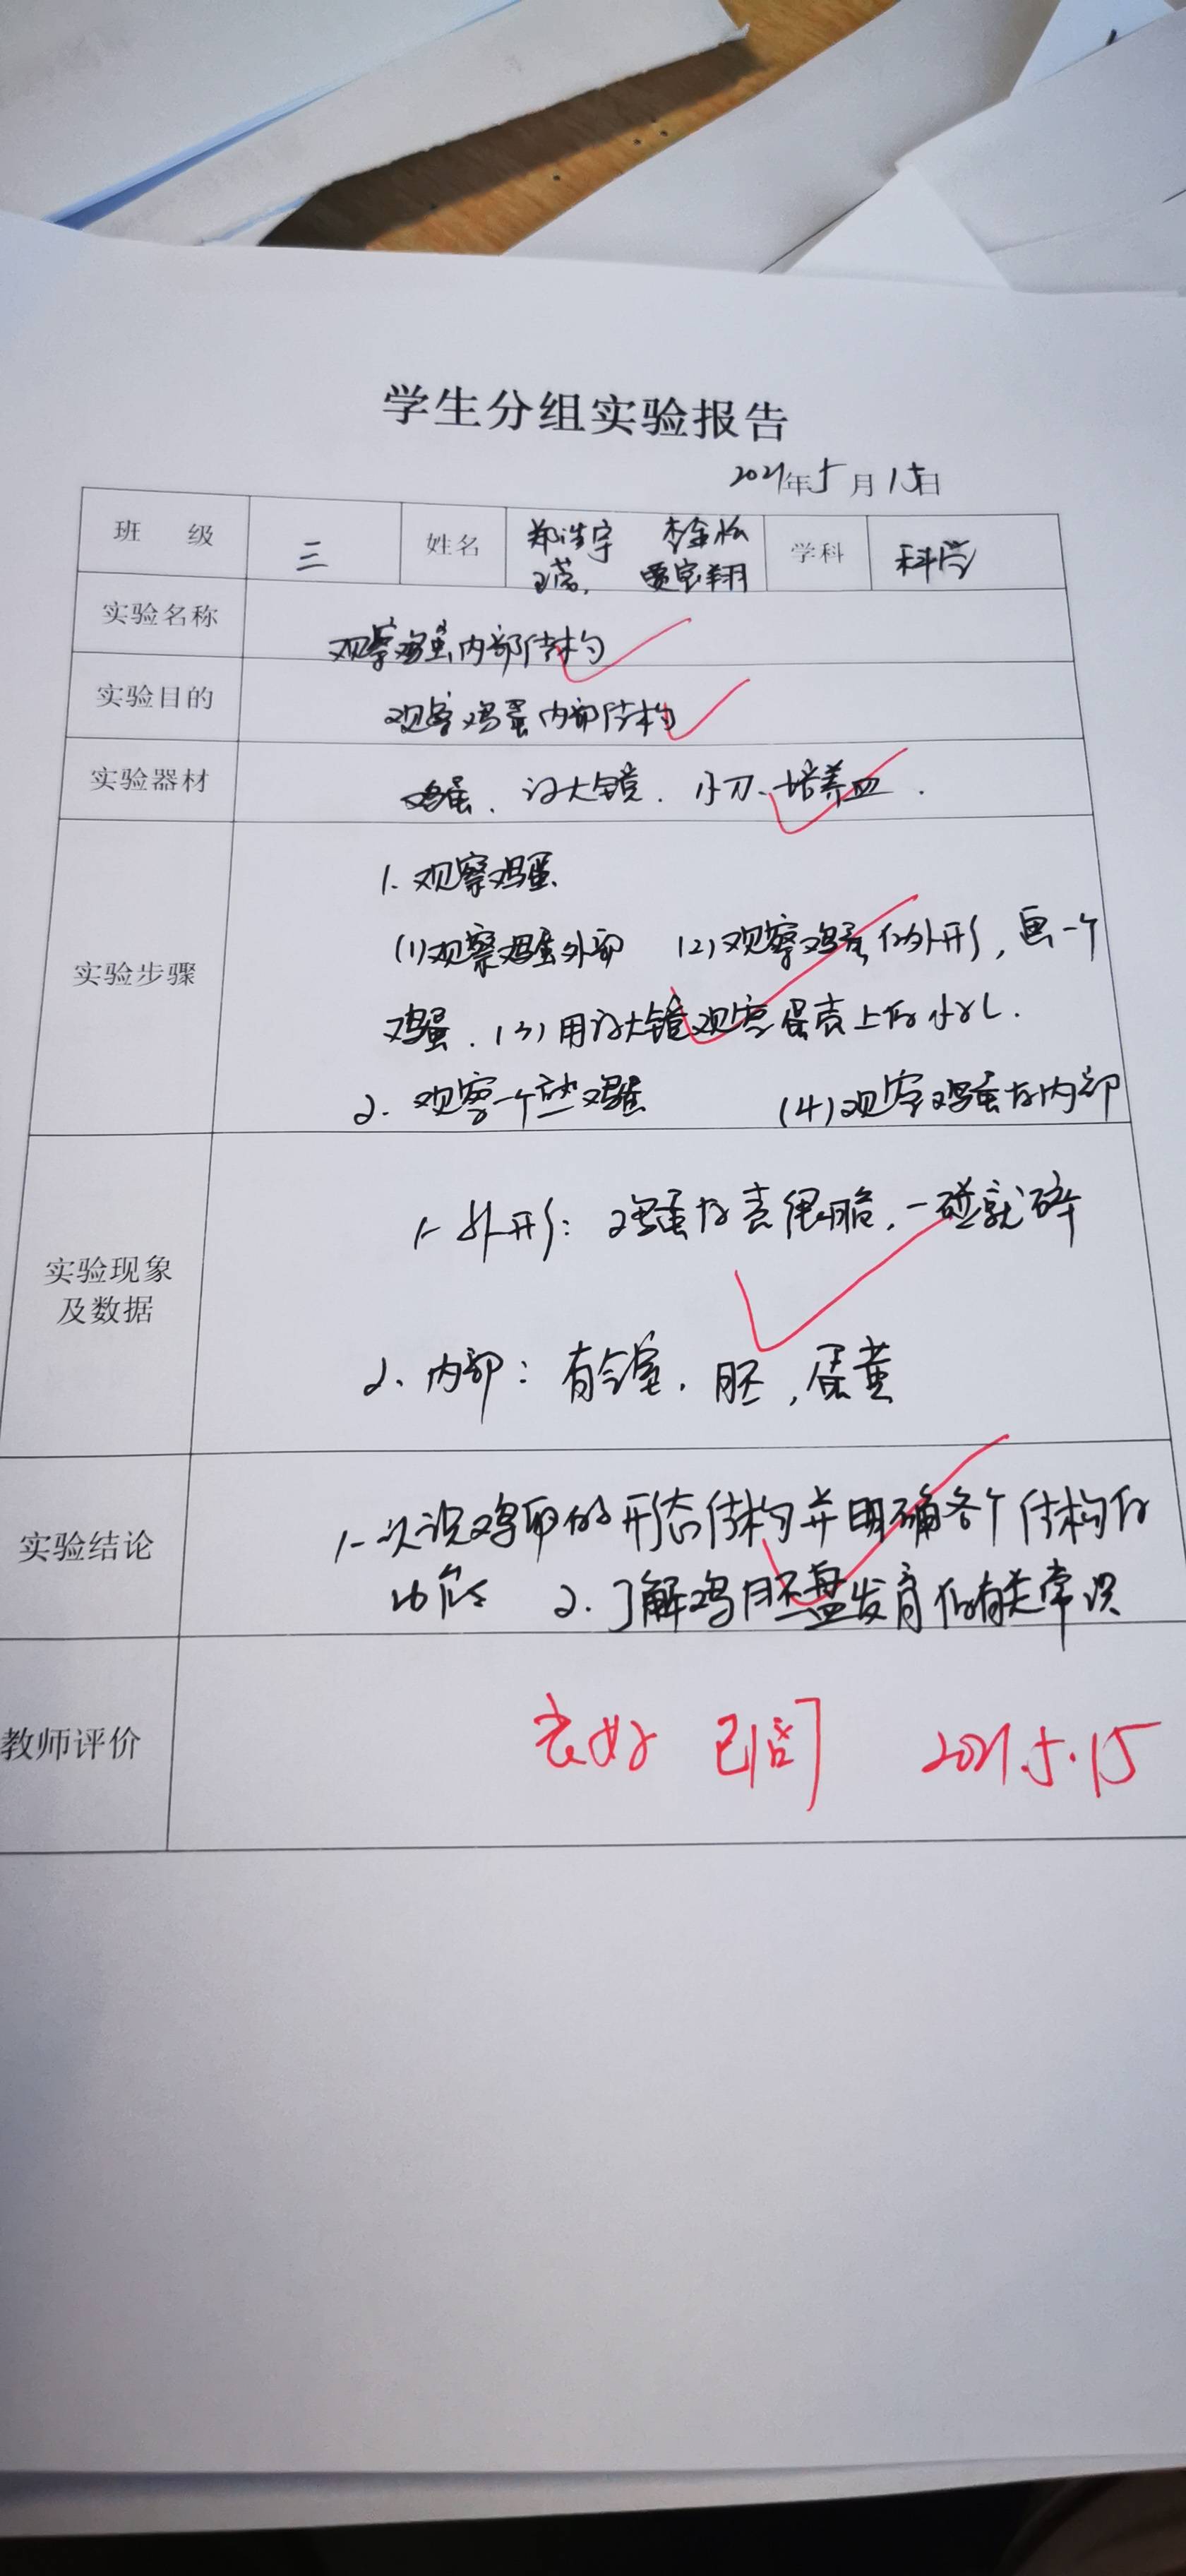 学生分组实验报告
2021年5月15日
班 级 三 姓名 郑浩宇 李金松 学科 科学
贾宝翔
实验名称 观察鸡蛋内部结构
实验目的 观察鸡蛋内部结构
实验器材 鸡蛋、放大镜、小刀、培养皿.
实验步骤
1.观察鸡蛋
(1)观察鸡蛋外部 (2)观察鸡蛋的外形,画一个
鸡蛋.(3)用放大镜观察蛋壳上的小孔.
2.观察一个熟鸡蛋 (4)观察鸡蛋的内部
实验现象
及数据
1.外形:鸡蛋的壳很脆,一碰就碎
2、内部:有气室,胚,蛋黄
实验结论
1.认识鸡卵的形态结构并明确各个结构的
功能 2.了解鸡胚盘发育的有关常识
教师评价 良好 已阅 2021.5.15